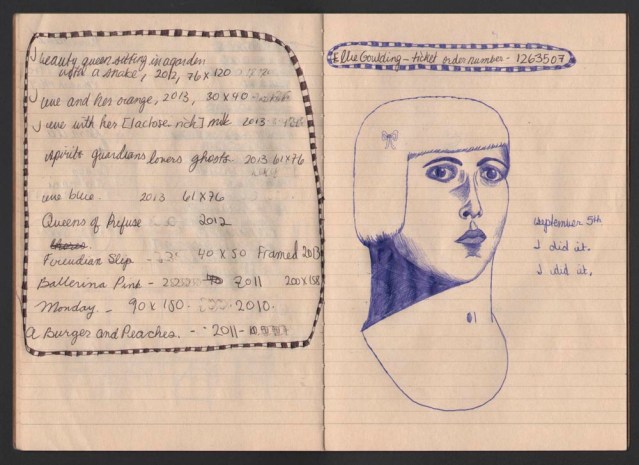 beauty queen sitting in a garden
with a snake, 2012, 76 x 120
une and her orange, 2013, 30 x 40
une with her [lactose rich] milk 2013
spirits guardians lovers ghosts. 2013 61x76
une blue. 2013 61x76
Queens of Refuse 2012
Freudian Slip - 40 x 50 Framed 2013
Ballerina Pink - 2011 200 x 158
Monday. - 90 x 180 - 2010.
A Burger and Peaches. - - 2011 -
Ellie Goulding - ticket order number - 1263507
September 5th
I did it.
I did it.